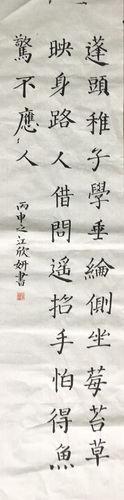 蓬頭稚子學垂綸側坐莓苔草
映身路人借問遥招手怕得魚
驚不應人
丙申之江欣妍書